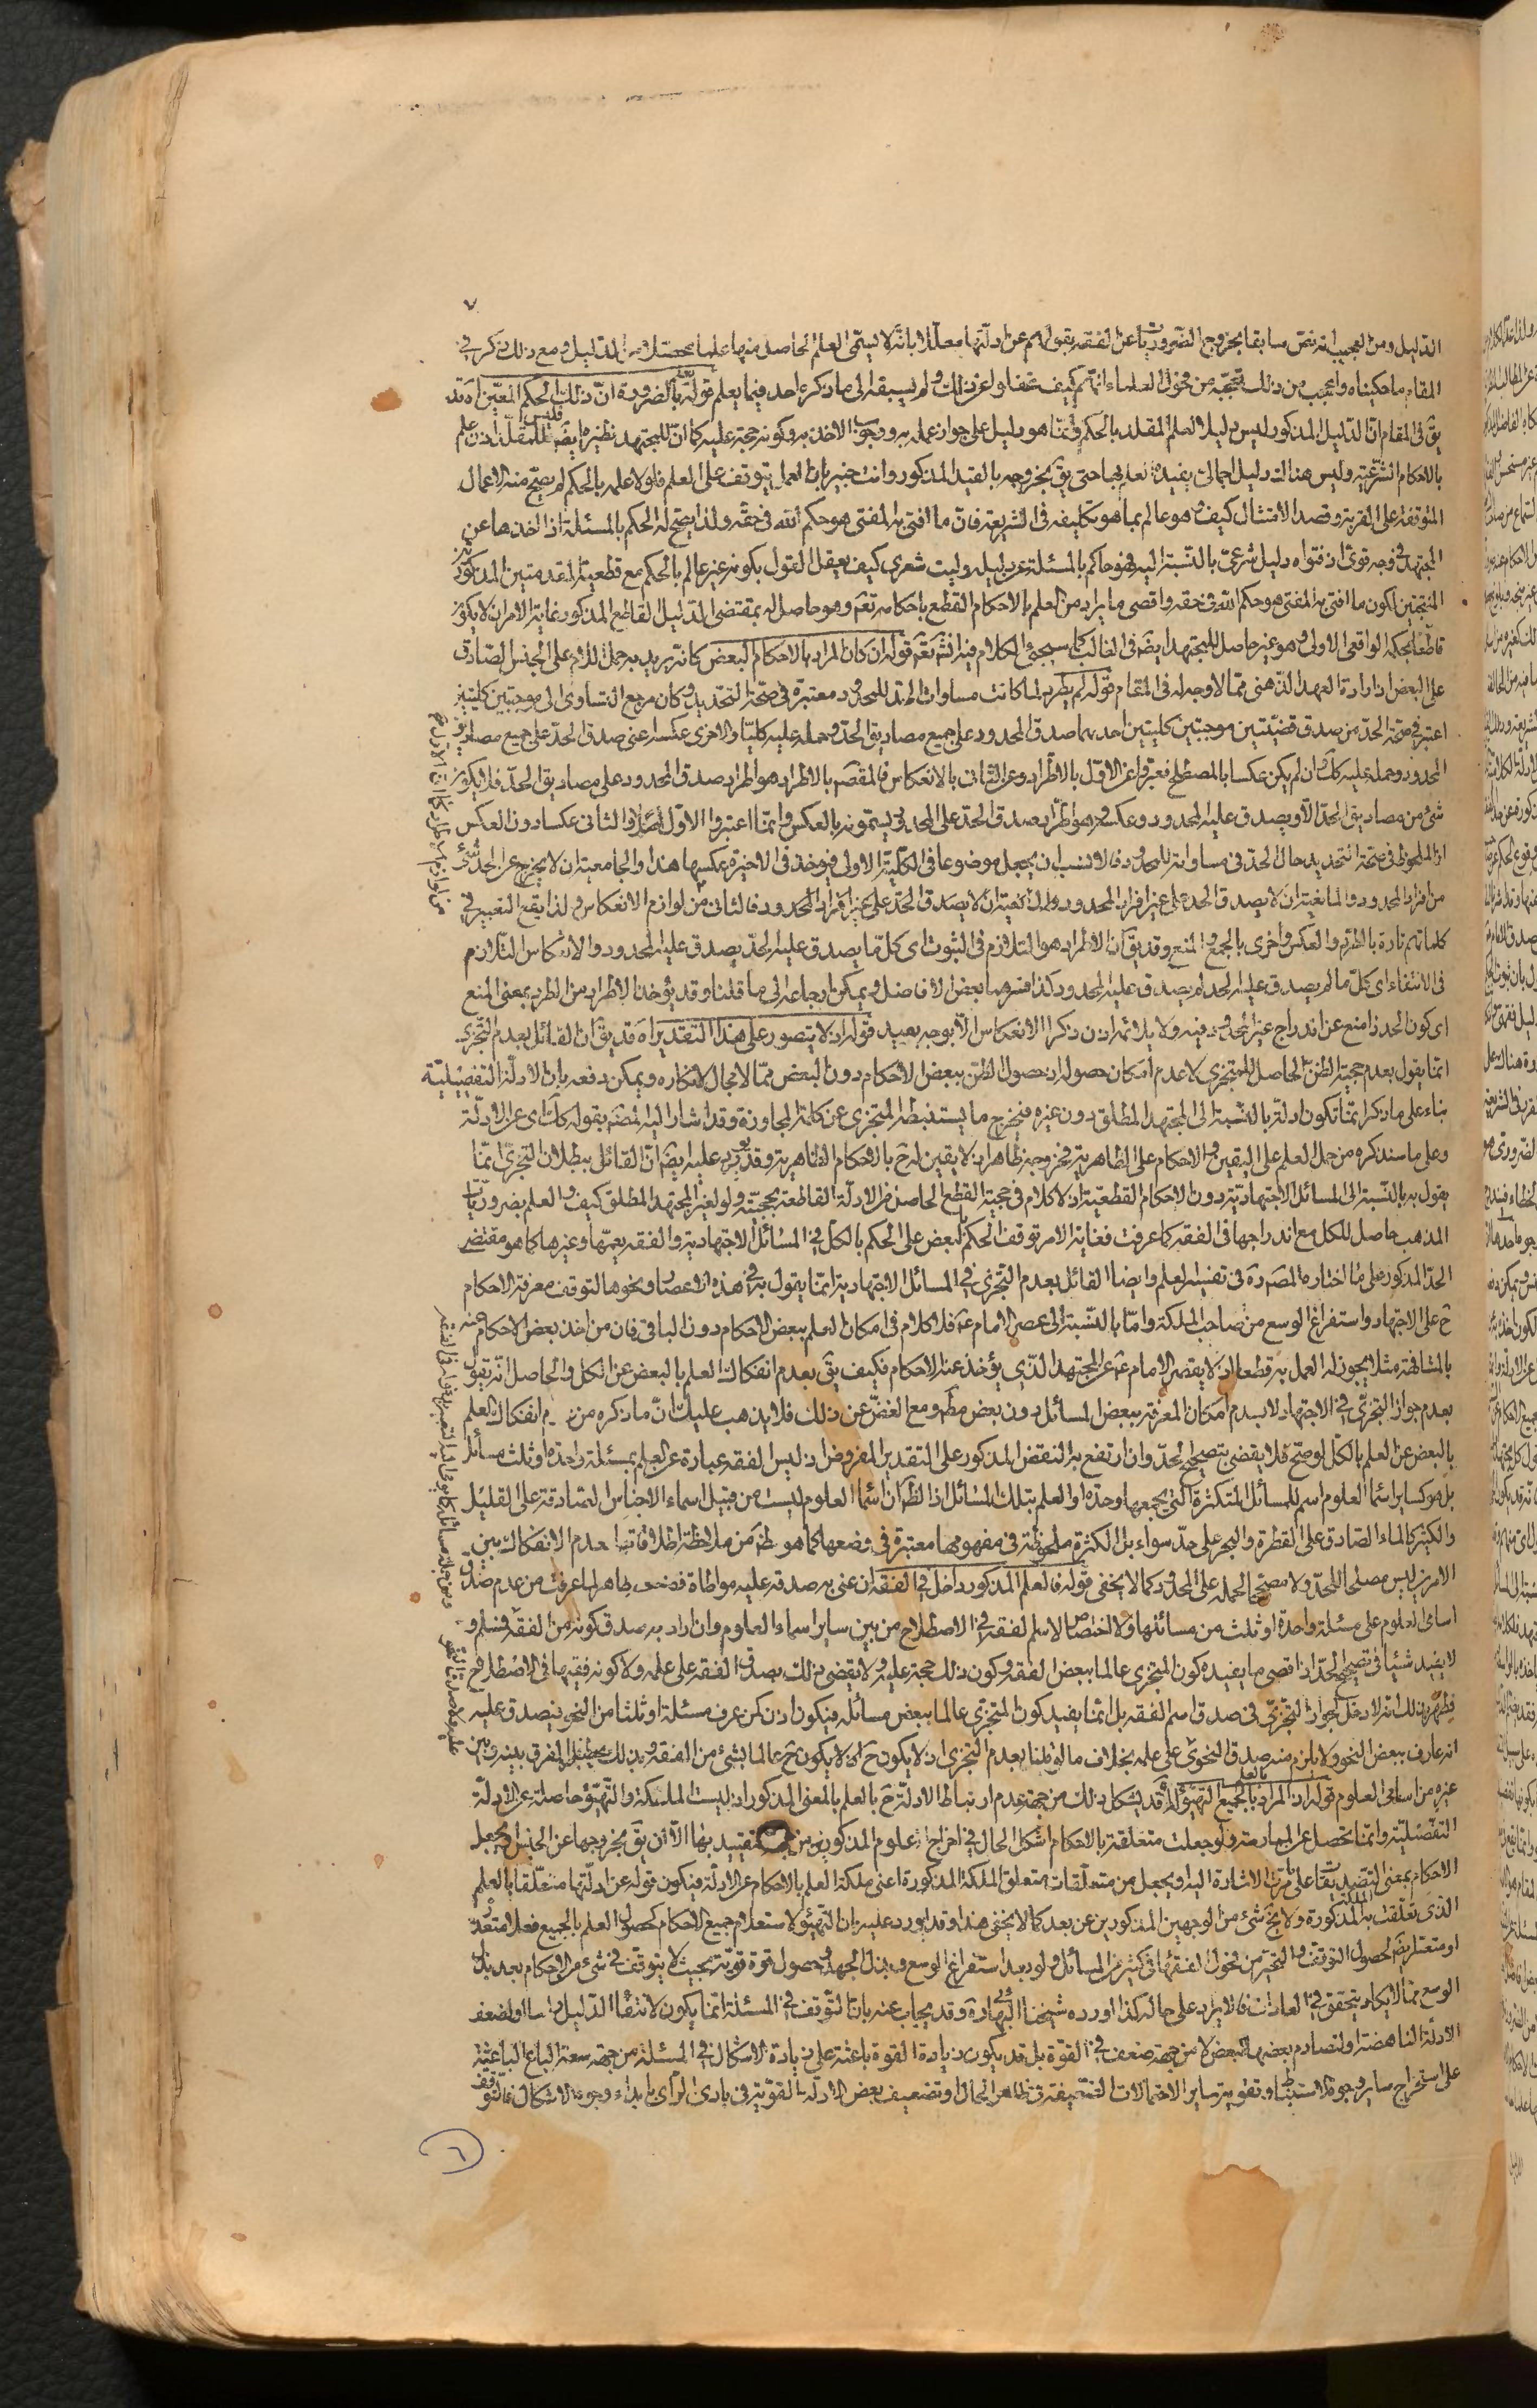 ٧
الدليل ومن العجيب انه نص سابقا بخروج الضروريات عن الفقه بقولهم عن ادلتها معللا بانه لا يسمى العلم الحاصل منها علما محصلا من الدليل ومع ذلك ذكر في
المقام ما حكيناه واعجب من ذلك تعجبه من فحول العلماء انهم كيف غفلوا عن ذلك ولم يسبقه الى ما ذكره احد فيما يعلم قوله بالضرورة ان ذلك الحكم المعين اه قد
يق في المقام ان الدليل المذكور ليس دليلا لعلم المقلد بالحكم وانما هو دليل على جواز عمله به ووجوب الاخذ به وكونه حجة عليه كما ان للمجتهد نظيره ايضا فليس للمقلد اذن علم
بالاحكام الشرعية وليس هناك دليل اجمالي يفيده العلم بها حتى يق بخروجه بالقيد المذكور وانت خبير بان العمل يتوقف على العلم فلولا علمه بالحكم لم يصح منه الاعمال
المتوقفة على القربة وقصد الامتثال كيف وهو عالم بما هو تكليفه في الشريعة فان ما افتى به المفتي هو حكم الله في حقه ولذا يصح له الحكم بالمسئلة اذا اخذها عن
المجتهد في وجه قوي اذ فتواه دليل شرعي بالنسبة اليه فهو حاكم بالمسئلة عن دليله وليت شعري كيف يعقل القول بكونه غير عالم بالحكم مع قطعية المقدمتين المذكورتين
المنتجتين لكون ما افتى به المفتي هو حكم الله في حقه واقصى ما يراد من العلم بالاحكام القطع باحكامه تعم وهو حاصل له بمقتضى الدليل القاطع المذكور غاية الامر ان لا يكون
قاطعا بحكمه الواقعي الاولي وهو غير حاصل للمجتهد ايضا في الغالب كما سيجيء الكلام فيه انشاء الله تعم قوله ان كان المراد بالاحكام البعض كانه يريد به حمل اللام على الجنس الصادق
على البعض اذ ارادة العهد الذهني مما لا وجه له في المقام قوله لم يطرد لما كانت مساواة الحد للمحدود معتبرة في صحة التحديد وكان مرجع التساوي الى موجبتين كليتين
اعتبر في صحة الحد من صدق قضيتين موجبتين كليتين احدهما صدق المحدود على جميع مصاديق الحد وحمله عليه كليا والاخرى عكسه اعني صدق الحد على جميع مصاديق
المحدود وحمله عليه كك وان لم يكن عكسا بالمصطلح فعبروا عن الاول بالاطراد وعن الثاني بالانعكاس فالمقصم بالاطراد هو اطراد صدق المحدود على مصاديق الحد فلا يكون
شيء من مصاديق الحد الا ويصدق عليه المحدود وعكسه هو اطراد صدق الحد على المحدود يسمونه بالعكس وانما اعتبروا الاول اصلا والثاني عكسا دون العكس
اذ الملحوظ في صحة التحديد حال الحد في مساواته للمحدود فالانسب ان يجعل موضوعا في الكلية الاولى فيؤخذ في الاخيرة عكسها هذا والجامعية ان لا يخرج عن الحد شيء
من افراد المحدود والمانعية ان لا يصدق الحد على غير افراد المحدود فالثاني من لوازم الانعكاس ولذا يقع التعبير في
كلماتهم تارة بالطرد والعكس واخرى بالجمع والمنع وقد يق ان الاطراد هو التلازم في الثبوت اى كل ما يصدق عليه الحد يصدق عليه المحدود والانعكاس التلازم
في الانتفاء اى كل ما لم يصدق عليه الحد لم يصدق عليه المحدود كذا فسرهما بعض الافاضل ويمكن ارجاعه الى ما قلنا وقد يؤخذ الاطراد من الطرد بمعنى المنع
اى كون الحد ذا منع عن اندراج غير المحدود فيه ولا يلائمه اذن ذكر الانعكاس الا بوجه بعيد قوله اذ لا يتصور على هذا التقدير اه قد يق ان القائل بعدم التجزي
انما يقول بعدم حجية الظن الحاصل للمتجزي لا عدم امكان حصوله اذ حصول الظن ببعض الاحكام دون البعض مما لا مجال لانكاره ويمكن دفعه بان الادلة التفصيلية
بناء على ما ذكر انما تكون ادلة بالنسبة الى المجتهد المطلق دون غيره فيخرج ما يستنبطه المتجزي عن كلمة المجاوزة وقد اشار اليه المصم بقوله كك اى عن الادلة
وعلى ما سنذكره من حمل العلم على اليقين والاحكام على الظاهرية فخروجه ظاهر اذ لا يقين له ح بالاحكام الظاهرية وقد يورد عليه ايضا ان القائل ببطلان التجزي انما
يقول به بالنسبة الى المسائل الاجتهادية دون الاحكام القطعية اذ لا كلام في حجية القطع الحاصل من الادلة القاطعة بحجيته ولو لغير المجتهد المطلق كيف والعلم بضروريات
المذهب حاصل للكل مع اندراجها في الفقه كما عرفت فغاية الامر توقف الحكم بالبعض على الحكم بالكل في المسائل الاجتهادية والفقه يعمها وغيرها كما هو مقتضى
الحد المذكور على ما اختاره المصم ره في تفسير العلم وايضا القائل بعدم التجزي في المسائل الاجتهادية انما يقول به في هذه الاعصار ونحوها لتوقف معرفة الاحكام
ح على الاجتهاد واستفراغ الوسع من صاحب الملكة واما بالنسبة الى عصر الامام ع فلا كلام في امكان العلم ببعض الاحكام دون الباقي فان من اخذ بعض الاحكام عنه
بالمشافهة مثلا يجوز له العمل به قطعا اذ لا يقصر الامام ع عن المجتهد الذي يؤخذ عنه الاحكام فكيف يق بعدم انفكاك العلم بالبعض عن الكل والحاصل انه يقول
بعدم جواز التجزي في الاجتهاد لا بعدم امكان المعرفة ببعض المسائل دون بعض مطم ومع الغض عن ذلك فلا يذهب عليك ان ما ذكره من عدم انفكاك العلم
بالبعض عن العلم بالكل لو صح فلا يقضي بتصحيح الحد وان ارتفع به النقض المذكور على التقدير المفروض اذ ليس الفقه عبارة عن العلم بمسئلة واحدة او ثلث مسائل
بل هو كساير اسماء العلوم اسم للمسائل المتكثرة التي يجمعها وحدة او العلم بتلك المسائل اذ الظم ان اسماء العلوم ليست من قبيل اسماء الاجناس الصادقة على القليل
والكثير كالماء الصادق على القطرة والبحر على حد سواء بل الكثرة ملحوظة في مفهومها معتبرة في وضعها كما هو ظم من ملاحظة اطلاقاتها فعدم الانفكاك بين
الامرين ليس مصلحا للحد ولا مصححا لحمله على المحدود كما لا يخفى قوله فالعلم المذكور داخل في الفقه ان عنى به صدقه عليه مواطاة فضعفه ظاهر لما عرفت من عدم صدق
اسامي العلوم على مسئلة واحدة او ثلث من مسائلها ولا اختصاص لاسم الفقه في الاصطلاح من بين ساير اسماء العلوم وان اراد به صدق كونه من الفقه فمسلم و
لا يفيد شيئا في تصحيح الحد اذ اقصى ما يفيده كون المتجزي عالما ببعض الفقه وكون ذلك حجة عليه ولا يقضي ذلك بصدق الفقه على علمه ولا كونه فقيها في الاصطلاح
فظهر بذلك انه لا دخل لجواز التجزي في صدق اسم الفقه بل انما يفيد كون المتجزي عالما ببعض مسائله فيكون اذن كمن عرف مسئلة او ثلثا من النحو فيصدق عليه
انه عارف ببعض النحو ولا يلزم منه صدق النحوي على علمه بخلاف ما لو قلنا بعدم التجزي اذ لا يكون ح عالما بشيء من الفقه وبذلك يحصل الفرق بينه وبين
غيره من اسامي العلوم قوله اذ المراد بالعلم بالجميع التهيؤ له قد يشكل ذلك من جهة عدم ارتباط الادلة ح بالعلم بالمعنى المذكور اذ ليست الملكة والتهيؤ حاصلة عن الادلة
التفصيلية وانما تحصل عن الممارسة ولو جعلت متعلقة بالاحكام اشكل الحال في اخراج العلوم المذكورين من التقييد بها الا ان يق بخروجها عن الجنس ويجعل
الاحكام بمعنى التصديقات على ما مرت الاشارة اليه او يجعل من متعلقات متعلق الملكة المذكورة اعني ملكة العلم بالاحكام عن الادلة فيكون قوله عن ادلتها متعلقا بالعلم
الذي تعلقت به الملكة المذكورة ولا يخ شيء من الوجهين المذكورين عن بعد كما لا يخفى هذا وقد اورد عليه بان التهيؤ لاستعلام جميع الاحكام كحصول العلم بالجميع فعلا متعذر
او متعسر ايضا لحصول التوقف والتحير من فحول الفقهاء في كثير من المسائل ولو بعد استفراغ الوسع وبذل الجهد وحصول قوة قوية بحيث لا يتوقف في شيء من الاحكام بعد بذل
الوسع مما لا يكاد يتحقق في العادات فالايراد على حاله كذا اورده شيخنا البهائي ره وقد يجاب عنه بان التوقف في المسئلة انما يكون لانتفاء الدليل او لضعف
الادلة الناهضة او لتصادم بعضها لبعض لا من جهة ضعف في القوة بل قد يكون زيادة القوة باعثة على زيادة الاشكال في المسئلة من جهة سعة الباع الباعثة
على استخراج ساير وجوه الاستنباط وتقوية ساير الاحتمالات الضعيفة في ظاهر الحال او تضعيف بعض الادلة القوية في بادي الراي بابداء وجوه الاشكال فالتوقف
٦